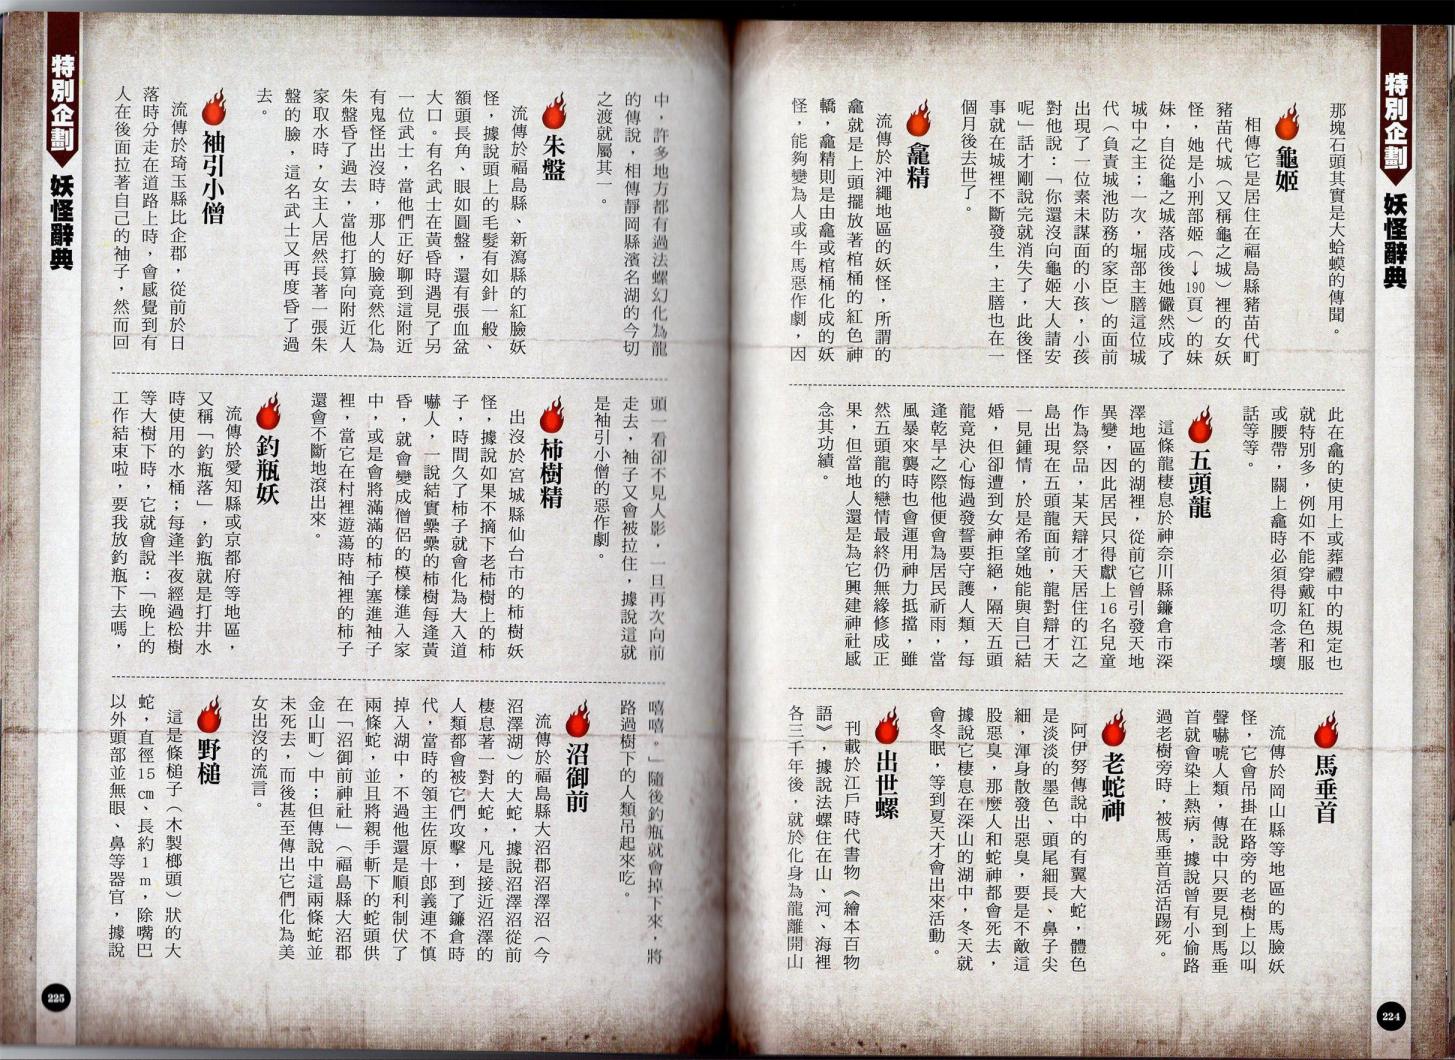 特別企劃
妖怪辭典
那塊石頭其實是大蛤蟆的傳聞。
龜姬
相傳它是居住在福島縣豬苗代町
豬苗代城（又稱龜之城）裡的女妖
怪，她是小刑部姬（→190頁）的妹
妹，自從龜之城落成後她儼然成了
城中之主；一次，堀部主膳這位城
代（負責城池防務的家臣）的面前
出現了一位素未謀面的小孩，小孩
對他說：「你還沒向龜姬大人請安
呢」話才剛說完就消失了，此後怪
事就在城裡不斷發生，主膳也在一
個月後去世了。
龕精
流傳於沖繩地區的妖怪，所謂的
龕就是上頭擺放著棺桶的紅色神
轎，龕精則是由龕或棺桶化成的妖
怪，能夠變為人或牛馬惡作劇，因
此在龕的使用上或葬禮中的規定也
就特別多，例如不能穿戴紅色和服
或腰帶，關上龕時必須得叨念著壞
話等等。
五頭龍
這條龍棲息於神奈川縣鎌倉市深
澤地區的湖裡，從前它曾引發天地
異變，因此居民只得獻上16名兒童
作為祭品，某天辯才天居住的江之
島出現在五頭龍面前，龍對辯才天
一見鍾情，於是希望她能與自己結
婚，但卻遭到女神拒絕，隔天五頭
龍竟決心悔過發誓要守護人類，每
逢乾旱之際他便會為居民祈雨，當
風暴來襲時也會運用神力抵擋，雖
然五頭龍的戀情最終仍無緣修成正
果，但當地人還是為它興建神社感
念其功績。
馬垂首
流傳於岡山縣等地區的馬臉妖
怪，它會吊掛在路旁的老樹上以叫
聲嚇唬人類，傳說中只要見到馬垂
首就會染上熱病，據說曾有小偷路
過老樹旁時，被馬垂首活活踢死。
老蛇神
阿伊努傳說中的有翼大蛇，體色
是淡淡的墨色、頭尾細長、鼻子尖
細，渾身散發出惡臭，要是不敵這
股惡臭，那麼人和蛇神都會死去，
據說它棲息在深山的湖中，冬天就
會冬眠，等到夏天才會出來活動。
出世螺
刊載於江戶時代書物《繪本百物
語》，據說法螺住在山、河、海裡
各三千年後，就於化身為龍離開山
224
中，許多地方都有過法螺幻化為龍
的傳說，相傳靜岡縣濱名湖的今切
之渡就屬其一。
朱盤
流傳於福島縣、新瀉縣的紅臉妖
怪，據說頭上的毛髮有如針一般、
額頭長角、眼如圓盤，還有張血盆
大口。有名武士在黃昏時遇見了另
一位武士，當他們正好聊到這附近
有鬼怪出沒時，那人的臉竟然化為
朱盤昏了過去，當他打算向附近人
家取水時，女主人居然長著一張朱
盤的臉，這名武士又再度昏了過
去。
袖引小僧
流傳於琦玉縣比企郡，從前於日
落時分走在道路上時，會感覺到有
人在後面拉著自己的袖子，然而回
頭一看卻不見人影，一日再次向前
走去，袖子又會被拉住，據說這就
是袖引小僧的惡作劇。
柿樹精
出沒於宮城縣仙台市的柿樹妖
怪，據說如果不摘下老柿樹上的柿
子，時間久了柿子就會化為大入道
嚇人，一說結實纍纍的柿樹每逢黃
昏，就會變成僧侶的模樣進入家
中，或是會將滿滿的柿子塞進袖子
裡，當它在村裡遊蕩時袖裡的柿子
還會不斷地滾出來。
釣瓶妖
流傳於愛知縣或京都府等地區，
又稱「釣瓶落」，釣瓶就是打井水
時使用的水桶；每逢半夜經過松樹
等大樹下時，它就會說：「晚上的
工作結束啦，要我放釣瓶下去嗎，
嘻嘻。」隨後釣瓶就會掉下來，將
路過樹下的人類吊起來吃。
沼御前
流傳於福島縣大沼郡沼澤沼（今
沼澤湖）的大蛇，據說沼澤沼從前
棲息著一對大蛇，凡是接近沼澤的
人類都會被它們攻擊，到了鎌倉時
代，當時的領主佐原十郎義連不慎
掉入湖中，不過他還是順利制伏了
兩條蛇，並且將親手斬下的蛇頭供
在「沼御前神社」（福島縣大沼郡
金山町）中；但傳說中這兩條蛇並
未死去，而後甚至傳出它們化為美
女出沒的流言。
野槌
這是條槌子（木製榔頭）狀的大
蛇，直徑15cm、長約1m，除嘴巴
以外頭部並無眼、鼻等器官，據說
特別企劃
妖怪辭典
225